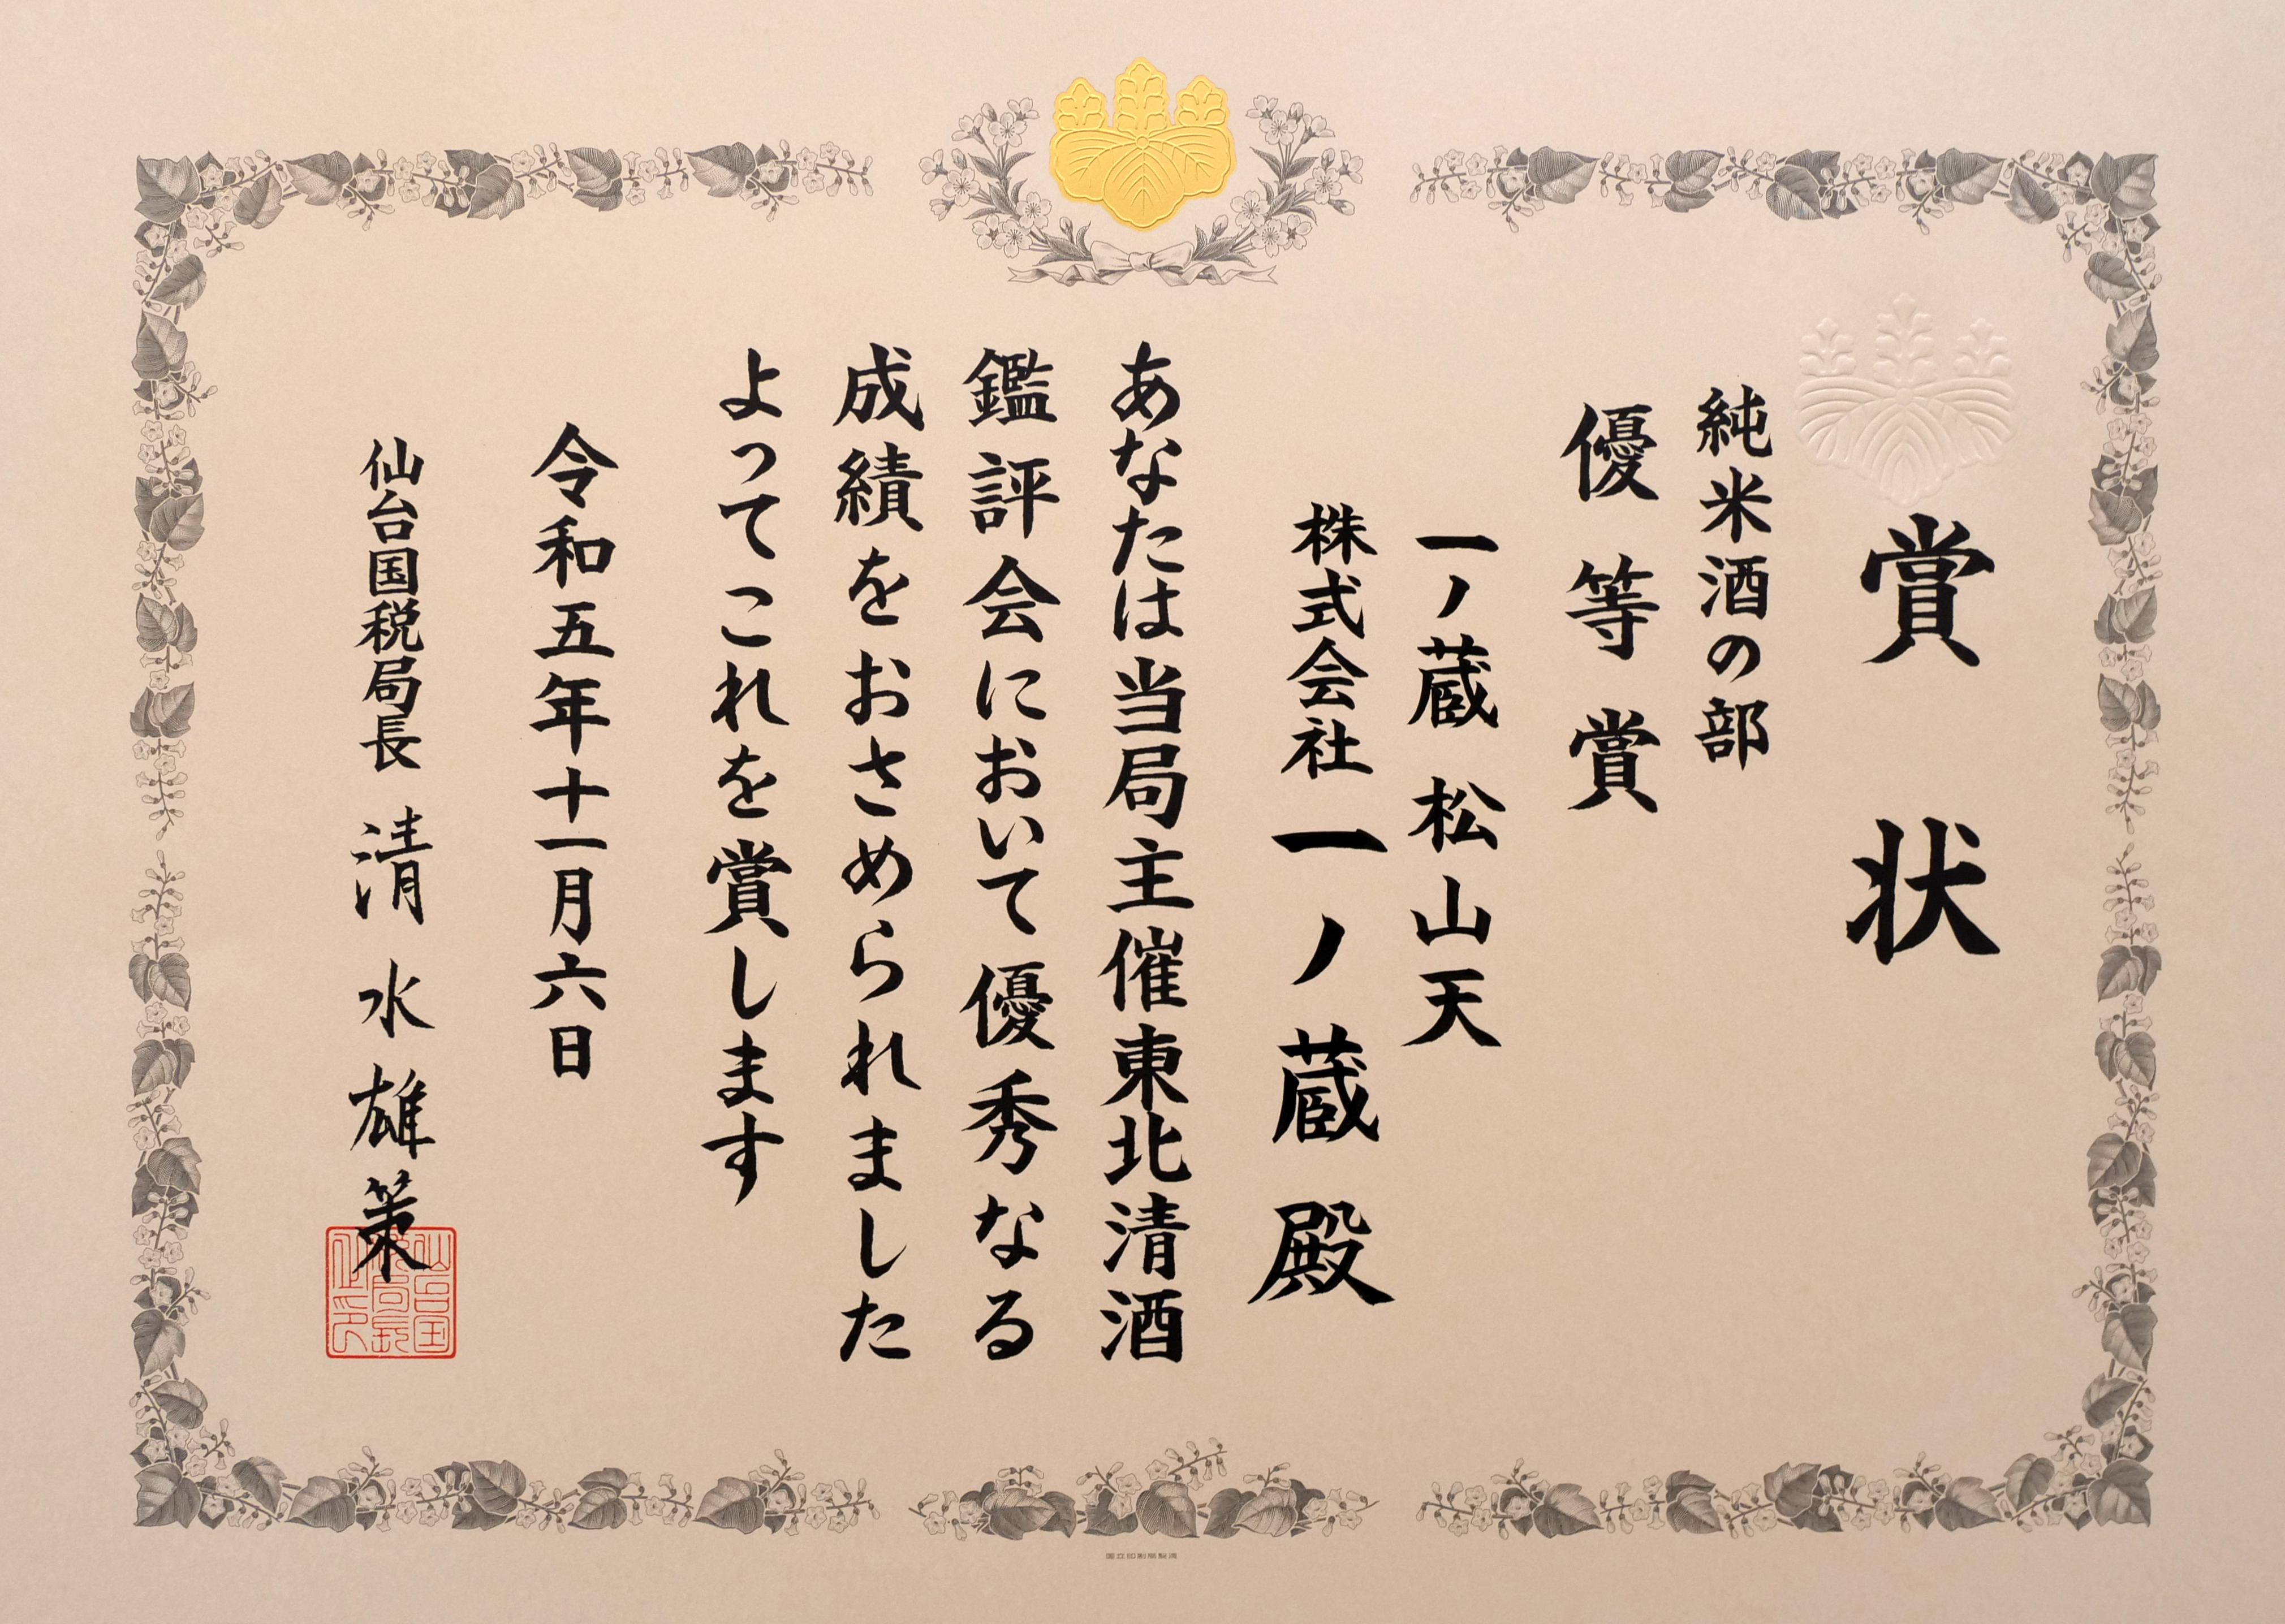 賞状
純米酒の部
優等賞
一ノ蔵 松山天
株式会社一ノ蔵殿
あなたは当局主催東北清酒
鑑評会において優秀なる
成績をおさめられました
よってこれを賞します
令和五年十一月六日
仙台国税局長 清水雄策
国立印刷局製造